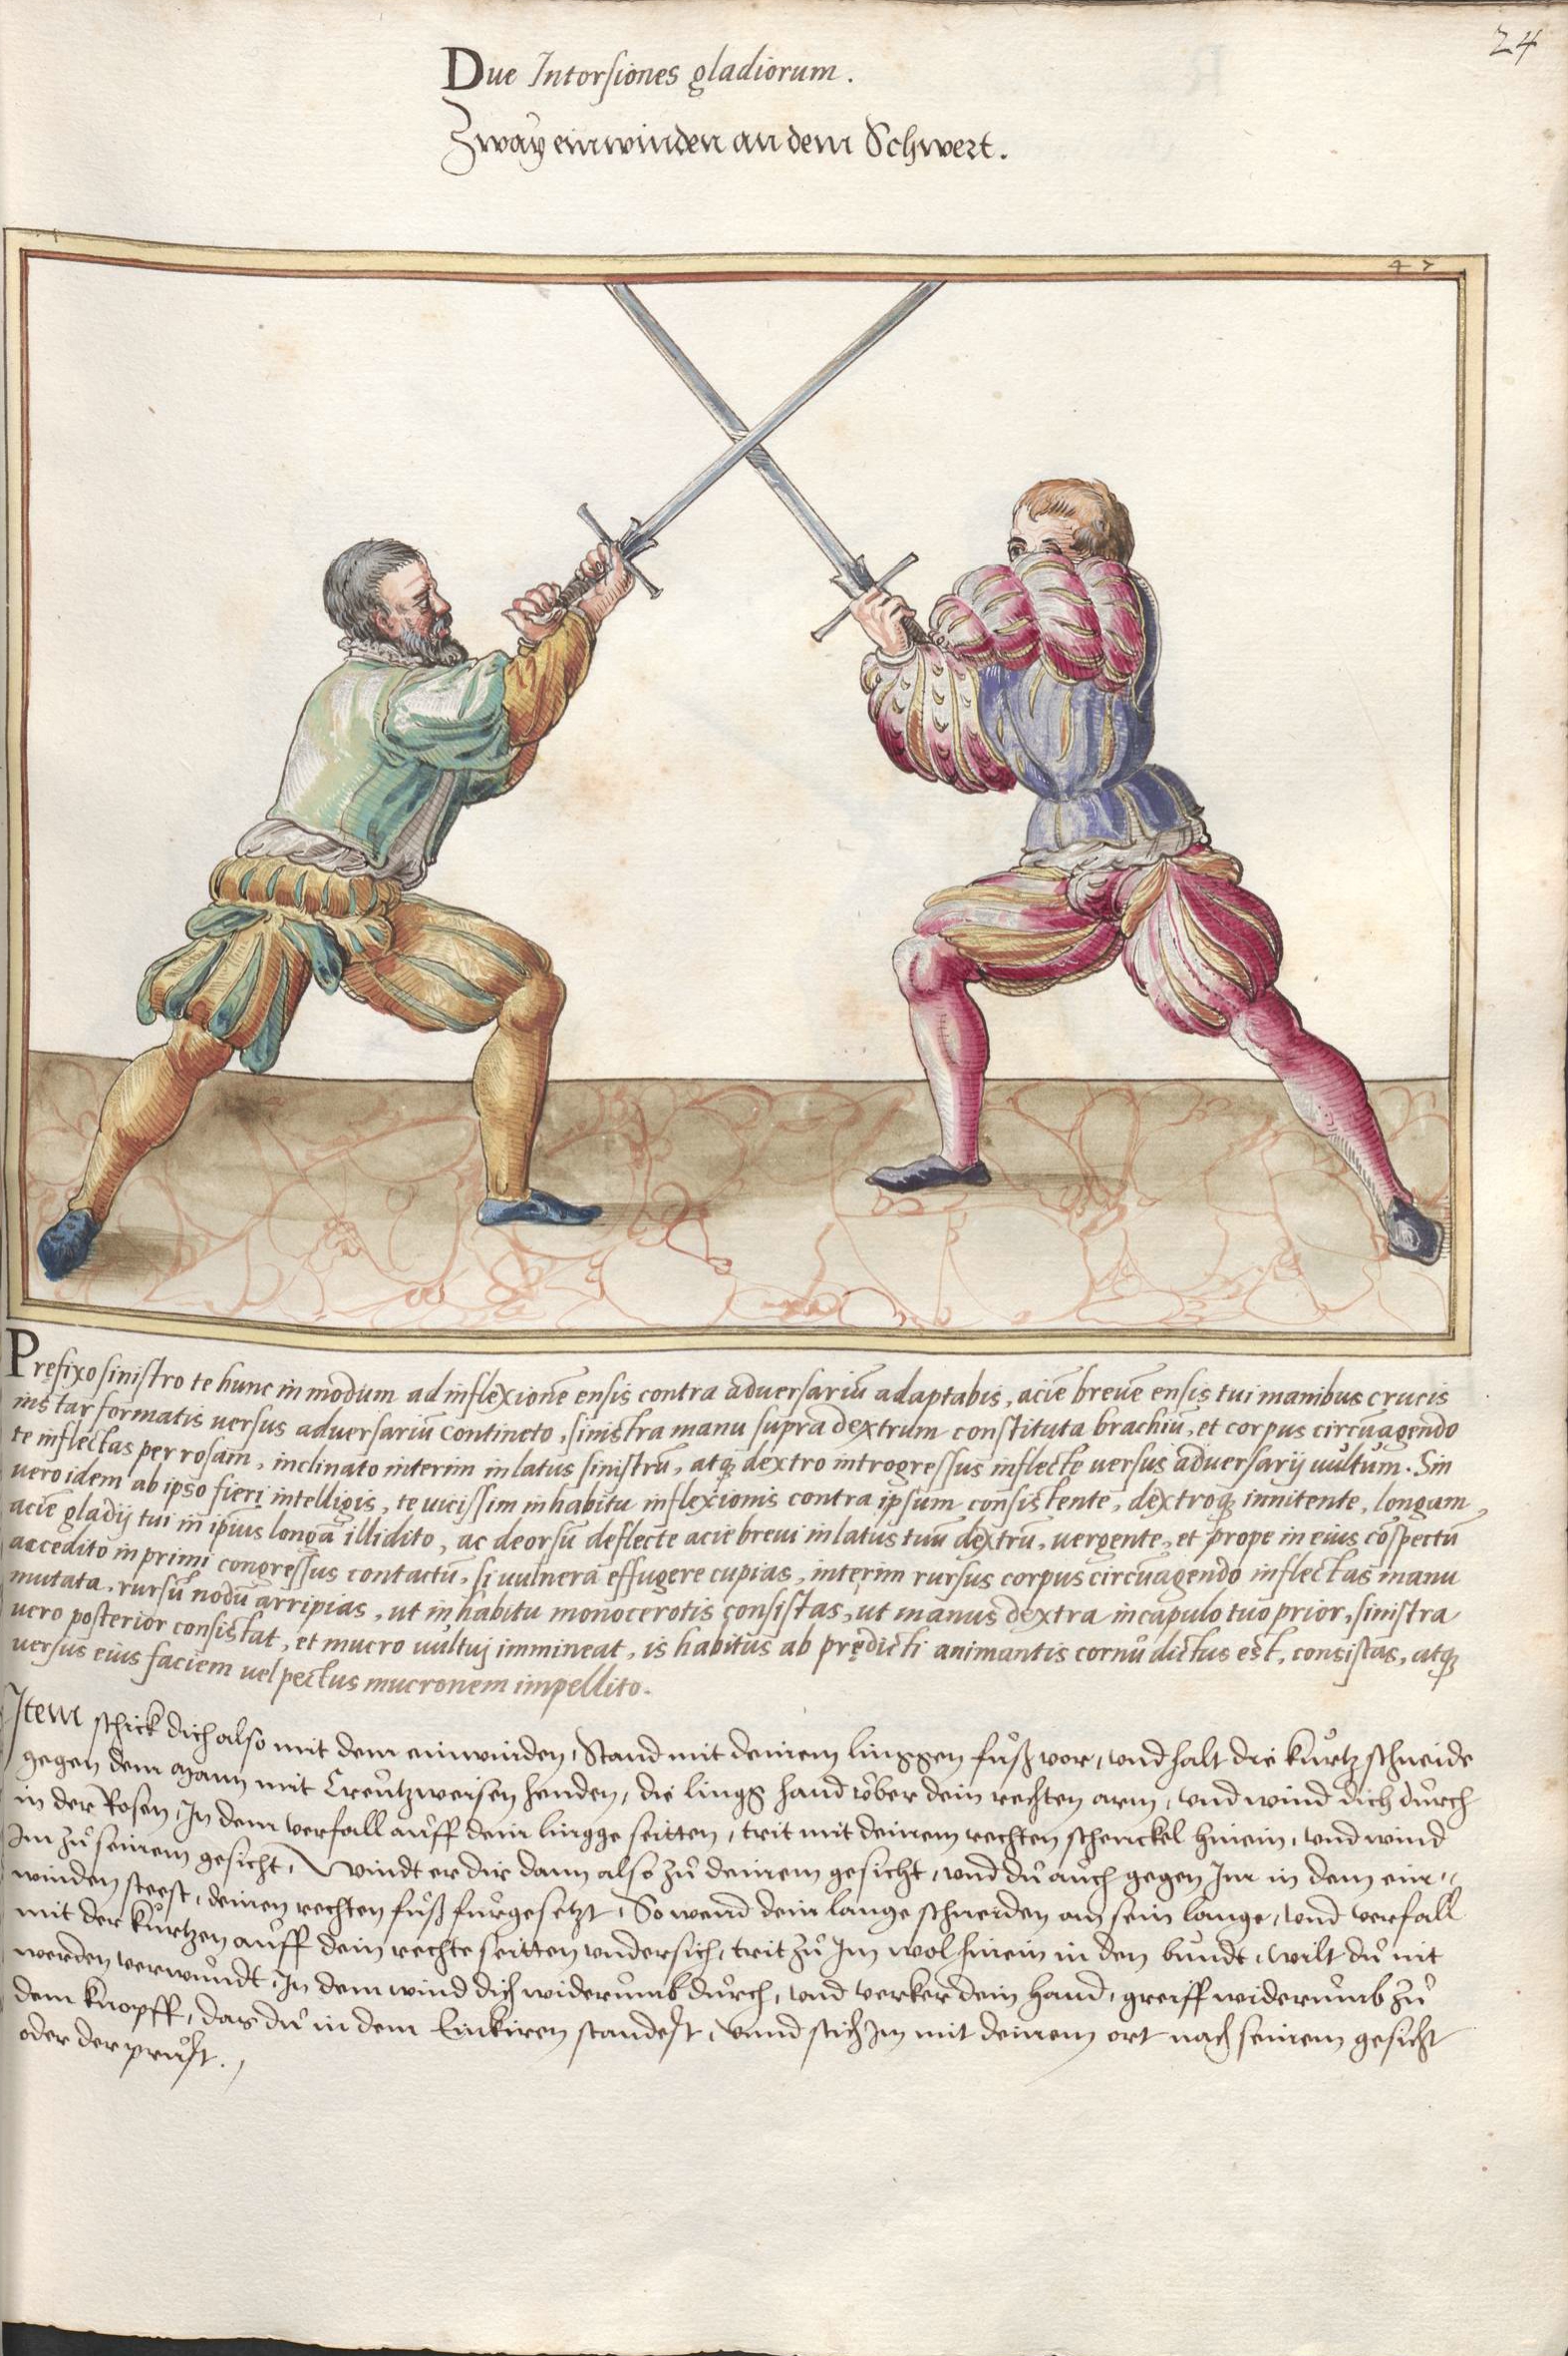 24
Due Intorsiones gladiorum.
Zway einwinden an dem Schwert.
47
Pręfixo sinistro te hunc in modum ad inflexionē ensis contra adversariū adaptabis, aciē brevē ensis tui manibus crucis
instar formatis versus adversariū contineto, sinistra manu supra dextrum constituta brachiū, et corpus circūagendo
te inflectas per rosam, inclinato interim in latus sinistrū, atq; dextro introgressus inflecte versus adversarij vultum. Sin
vero idem ab ipso fieri intelligis, te vicissim in habitu inflexionis contra ipsum consistente, dextroq; innitente, longam
aciē gladij tui in ipsius longā illidito, ac deorsū deflecte acie brevi in latus tuū dextrū, vergente, et prope in eius cōspectū
accedito in primi congressus contactū, si vulnera effugere cupias, interim rursus corpus circūagendo inflectas manu
mutata, rursū nodū arripias, ut in habitu monocerotis consistas, ut manus dextra in capulo tuo prior, sinistra
vero posterior consistat, et mucro vultuj immineat, is habitus ab prędicti animantis cornů dictus est, consistas, atq;
versus eius faciem vel pectus mucronem impellito.
Item schick dich also mit dem einwinden, Stand mit deinem linggen fůß vor, vnd halt die kůrtz schneide
gegen dem mann mit Creůtzweisen henden, die lingg hand v̊ber dein rechten arm, vnd wind dich důrch
in der Rosen, In dem verfall aůff dein lingge seitten, trit mit deinem rechten schenckel hinein, vnd wind
Im zů seinem gesicht, Windt er dir dann also zů deinem gesicht, vnd dů aůch gegen Im in dem ein„
winden steest, deinen rechten fůß fůrgesetzt, So wend dein lange schneiden an sein lange, vnd verfall
mit der kůrtzen aůff dein rechte seitten vndersich, trit zů Im wol hinein in den bůndt, wilt dů nit
werden verwůndt, In dem wind dich widerůmb důrch, vnd verker dein hand, greiff widerůmb zů
dem knopff, das dů in dem Einkiren standest, vnnd stich Im mit deinem ort nach seinem gesicht
oder der průst.